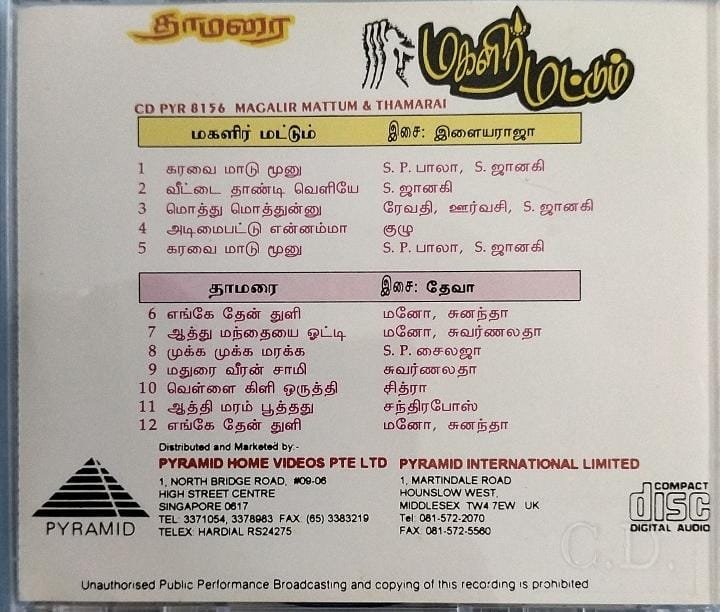 தாமரை
மகளிர் மட்டும்
CD PYR 8156 MAGALIR MATTUM & THAMARAI
மகளிர் மட்டும் இசை: இளையராஜா
1 கரவை மாடு மூனு S. P. பாலா, S. ஜானகி
2 வீட்டை தாண்டி வெளியே S. ஜானகி
3 மொத்து மொத்துன்னு ரேவதி, ஊர்வசி, S. ஜானகி
4 அடிமைபட்டு என்னம்மா குழு
5 கரவை மாடு மூனு S. P. பாலா, S. ஜானகி
தாமரை இசை: தேவா
6 எங்கே தேன் துளி மனோ, சுனந்தா
7 ஆத்து மந்தையை ஓட்டி மனோ, சுவர்ணலதா
8 முக்க முக்க மரக்க S. P. சைலஜா
9 மதுரை வீரன் சாமி சுவர்ணலதா
10 வெள்ளை கிளி ஒருத்தி சித்ரா
11 ஆத்தி மரம் பூத்தது சந்திரபோஸ்
12 எங்கே தேன் துளி மனோ, சுனந்தா
Distributed and Marketed by:-
PYRAMID HOME VIDEOS PTE LTD PYRAMID INTERNATIONAL LIMITED
1, NORTH BRIDGE ROAD, #09-06 1, MARTINDALE ROAD
HIGH STREET CENTRE HOUNSLOW WEST,
SINGAPORE 0617 MIDDLESEX TW4 7EW UK
TEL: 3371054, 3378983 FAX: (65) 3383219 Tel: 081-572-2070
TELEX: HARDIAL RS24275 FAX: 081-572-5560
PYRAMID
COMPACT
disc
DIGITAL AUDIO
C.D.
Unauthorised Public Performance Broadcasting and copying of this recording is prohibited